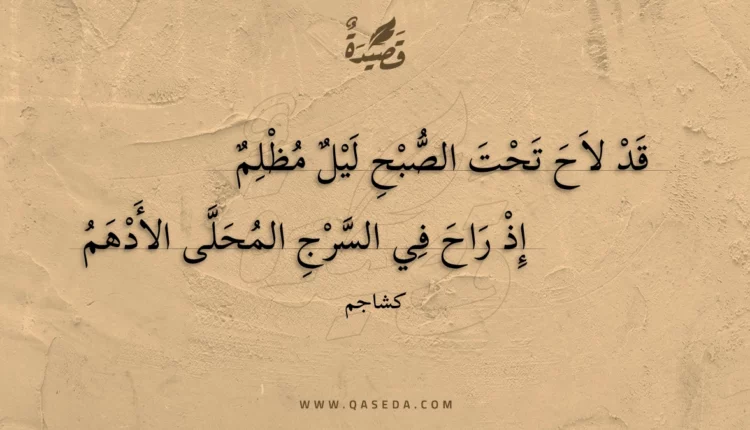 قَصِيدَةٌ
قَدْ لاَحَ تَحْتَ الصُّبْحِ لَيْلٌ مُظْلِمٌ
إِذْ رَاحَ فِي السَّرْجِ المُحَلَّى الأَدْهَمُ
كشاجم
WWW.QASEDA.COM